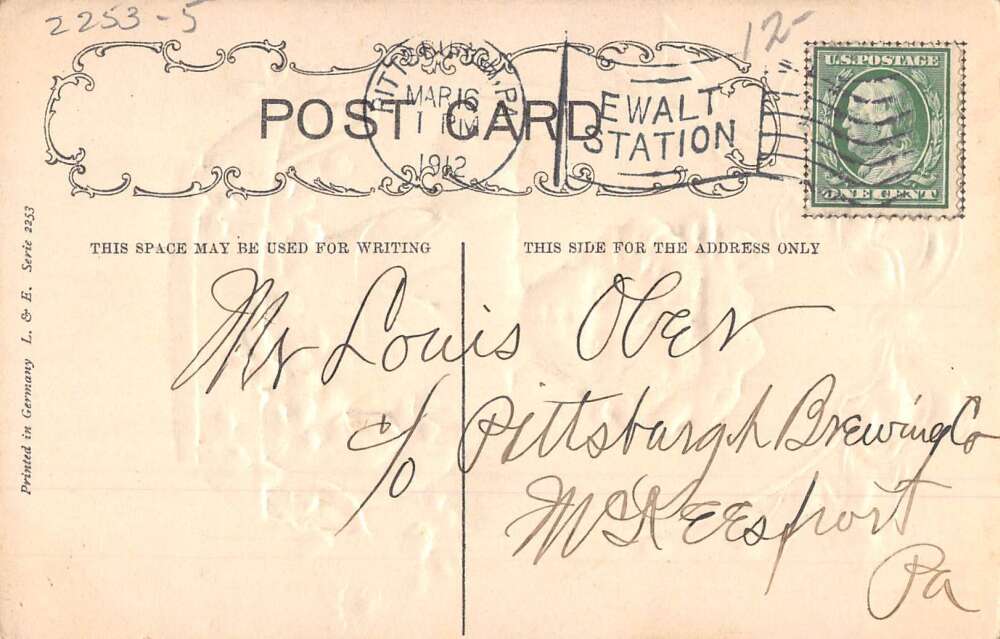 2253-5
12-
U.S. POSTAGE
ONE CENT
PITTSBURGH, PA
MAR 16
1 PM
1912
EWALT
STATION
POST CARD
THIS SPACE MAY BE USED FOR WRITING
THIS SIDE FOR THE ADDRESS ONLY
Mr Louis Ober
c/o Pittsburgh Brewing Co
McKeesport
Pa
Printed in Germany L. & E. Serie 2253